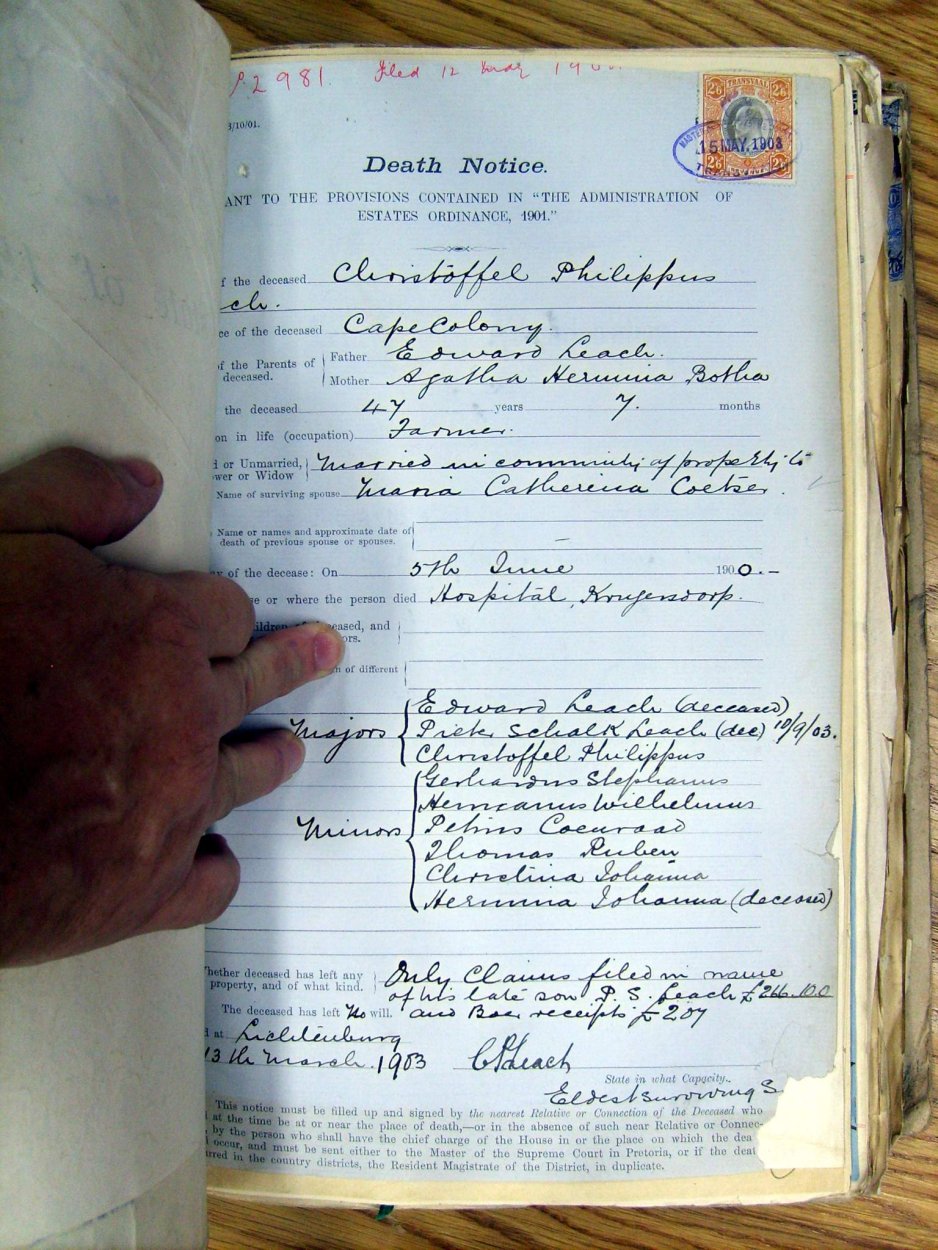 2981. Filed 12
3/10/01.
TRANSVAAL
2/6 2/6
15 MAY. 1903
2/6 2/6
Death Notice.
ANT TO THE PROVISIONS CONTAINED IN "THE ADMINISTRATION OF
ESTATES ORDINANCE, 1901."
f the deceased Christoffel Philippus
ch.
ce of the deceased Cape Colony.
of the Parents of Father Edward Leach.
deceased. Mother Agatha Hermina Botha
the deceased 47 years 7. months
on in life (occupation) Farmer.
d or Unmarried, Married in community of property to
wer or Widow
Name of surviving spouse Maria Catherena Coetser.
Name or names and approximate date of
death of previous spouse or spouses. –
y of the decease: On 5th June 1900.–
se or where the person died Hospital, Krugersdorp.
hildren of deceased, and
ors.
n of different
Edward Leach (deceased)
Majors Pieter Schalk Leach (dec) 10/9/03.
Christoffel Philippus
Gerhardus Stephanus
Hermanus Wilhelmus
Minors Petrus Coenraad
Thomas Ruben
Christina Johanna
Hermina Johanna (deceased)
hether deceased has left any Only Claims filed in name
property, and of what kind. of his late son P. S. Leach £266.10.0
The deceased has left No will. and Boer receipts £207
d at Lichtenburg
13th March 1903 C P Leach
State in what Capacity.
Eldest surviving S
This notice must be filled up and signed by the nearest Relative or Connection of the Deceased who
at the time be at or near the place of death,—or in the absence of such near Relative or Connec-
by the person who shall have the chief charge of the House in or the place on which the dea
occur, and must be sent either to the Master of the Supreme Court in Pretoria, or if the deat
urred in the country districts, the Resident Magistrate of the District, in duplicate.